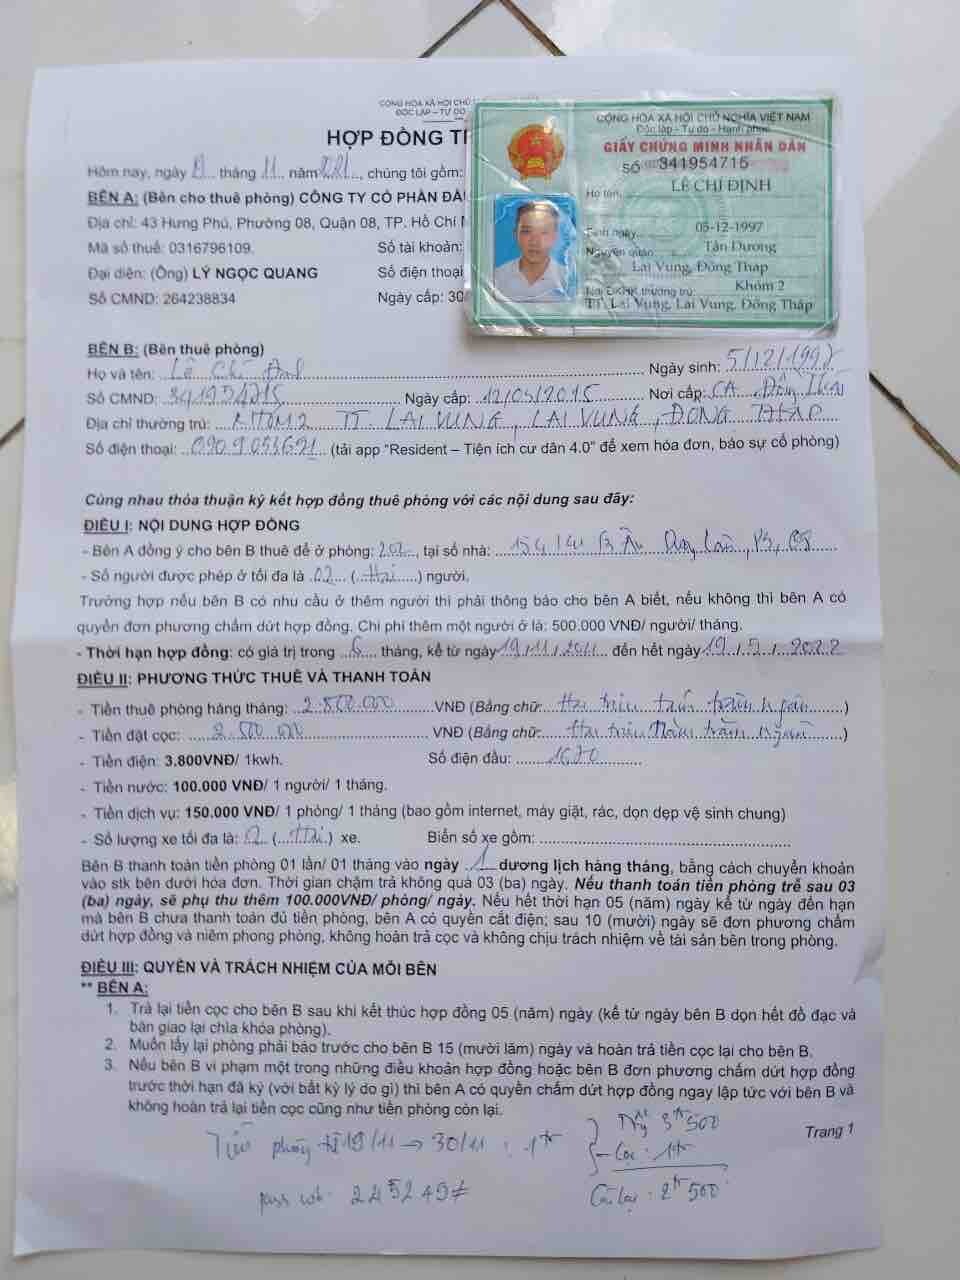 CỘNG HÒA XÃ HỘI CHỦ
ĐỘC LẬP – TỰ DO
HỢP ĐỒNG
CỘNG HÒA XÃ HỘI CHỦ NGHĨA VIỆT NAM
Độc lập - Tự do - Hạnh phúc
GIẤY CHỨNG MINH NHÂN DÂN
SỐ 341954715
Họ tên: LÊ CHÍ ĐỊNH
Sinh ngày: 05-12-1997
Nguyên quán: Tân Dương
Lai Vung, Đồng Tháp
Nơi ĐKHK thường trú: Khóm 2
TT. Lai Vung, Lai Vung, Đồng Tháp
Hôm nay, ngày tháng 11 năm 2021, chúng tôi gồm:
BÊN A: (Bên cho thuê phòng) CÔNG TY CỔ PHẦN
Địa chỉ: 43 Hưng Phú, Phường 08, Quận 08, TP. Hồ Chí
Mã số thuế: 0316796109. Số tài khoản:
Đại diện: (Ông) LÝ NGỌC QUANG Số điện thoại
Số CMND: 264238834 Ngày cấp: 30
BÊN B: (Bên thuê phòng)
Họ và tên: Lê Chí Định Ngày sinh: 5/12/1997
Số CMND: 341954715 Ngày cấp: 12/05/2015 Nơi cấp: CA. Đồng Tháp
Địa chỉ thường trú: KHÓM 2 TT. LAI VUNG, LAI VUNG, ĐỒNG THÁP
Số điện thoại: 0909053621 (tải app "Resident – Tiện ích cư dân 4.0" để xem hóa đơn, báo sự cố phòng)
Cùng nhau thỏa thuận ký kết hợp đồng thuê phòng với các nội dung sau đây:
ĐIỀU I: NỘI DUNG HỢP ĐỒNG
- Bên A đồng ý cho bên B thuê để ở phòng: 202, tại số nhà:
- Số người được phép ở tối đa là 02 (Hai) người.
Trường hợp nếu bên B có nhu cầu ở thêm người thì phải thông báo cho bên A biết, nếu không thì bên A có
quyền đơn phương chấm dứt hợp đồng. Chi phí thêm một người ở là: 500.000 VNĐ/ người/ tháng.
- Thời hạn hợp đồng: có giá trị trong 6 tháng, kể từ ngày 19/11/2021 đến hết ngày 19/5/2022
ĐIỀU II: PHƯƠNG THỨC THUÊ VÀ THANH TOÁN
- Tiền thuê phòng hàng tháng: 2.800.000 VNĐ (Bằng chữ: Hai triệu tám trăm ngàn)
- Tiền đặt cọc: 2.500.000 VNĐ (Bằng chữ: Hai triệu năm trăm ngàn)
- Tiền điện: 3.800VNĐ/ 1kwh. Số điện đầu: 1670
- Tiền nước: 100.000 VNĐ/ 1 người/ 1 tháng.
- Tiền dịch vụ: 150.000 VNĐ/ 1 phòng/ 1 tháng (bao gồm internet, máy giặt, rác, dọn dẹp vệ sinh chung)
- Số lượng xe tối đa là: 2 (Hai) xe. Biển số xe gồm:
Bên B thanh toán tiền phòng 01 lần/ 01 tháng vào ngày 1 dương lịch hàng tháng, bằng cách chuyển khoản
vào stk bên dưới hóa đơn. Thời gian chậm trả không quá 03 (ba) ngày. Nếu thanh toán tiền phòng trễ sau 03
(ba) ngày, sẽ phụ thu thêm 100.000VNĐ/ phòng/ ngày. Nếu hết thời hạn 05 (năm) ngày kể từ ngày đến hạn
mà bên B chưa thanh toán đủ tiền phòng, bên A có quyền cắt điện; sau 10 (mười) ngày sẽ đơn phương chấm
dứt hợp đồng và niêm phong phòng, không hoàn trả cọc và không chịu trách nhiệm về tài sản bên trong phòng.
ĐIỀU III: QUYỀN VÀ TRÁCH NHIỆM CỦA MỖI BÊN
** BÊN A:
1. Trả lại tiền cọc cho bên B sau khi kết thúc hợp đồng 05 (năm) ngày (kể từ ngày bên B dọn hết đồ đạc và
bàn giao lại chìa khóa phòng).
2. Muốn lấy lại phòng phải báo trước cho bên B 15 (mười lăm) ngày và hoàn trả tiền cọc lại cho bên B.
3. Nếu bên B vi phạm một trong những điều khoản hợp đồng hoặc bên B đơn phương chấm dứt hợp đồng
trước thời hạn đã ký (với bất kỳ lý do gì) thì bên A có quyền chấm dứt hợp đồng ngay lập tức với bên B và
không hoàn trả lại tiền cọc cũng như tiền phòng còn lại.
Trang 1
Tiền phòng từ 19/11 → 30/11 : 1tr
3tr500
- Cọc: 1tr
Còn lại: 2tr500
pass 245249#